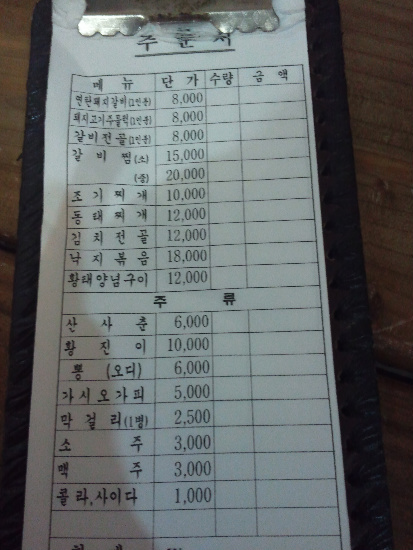 주 문 서
메 뉴 단 가 수량 금 액
연탄돼지갈비(1인분) 8,000
돼지고기주물럭(1인분) 8,000
갈비전골(1인분) 8,000
갈 비 찜(소) 15,000
(중) 20,000
조 기 찌 개 10,000
동 태 찌 개 12,000
김 치 전 골 12,000
낙 지 볶 음 18,000
황태양념구이 12,000
주 류
산 사 춘 6,000
황 진 이 10,000
뽕 (오디) 6,000
가시오가피 5,000
막 걸 리(1병) 2,500
소 주 3,000
맥 주 3,000
콜라,사이다 1,000